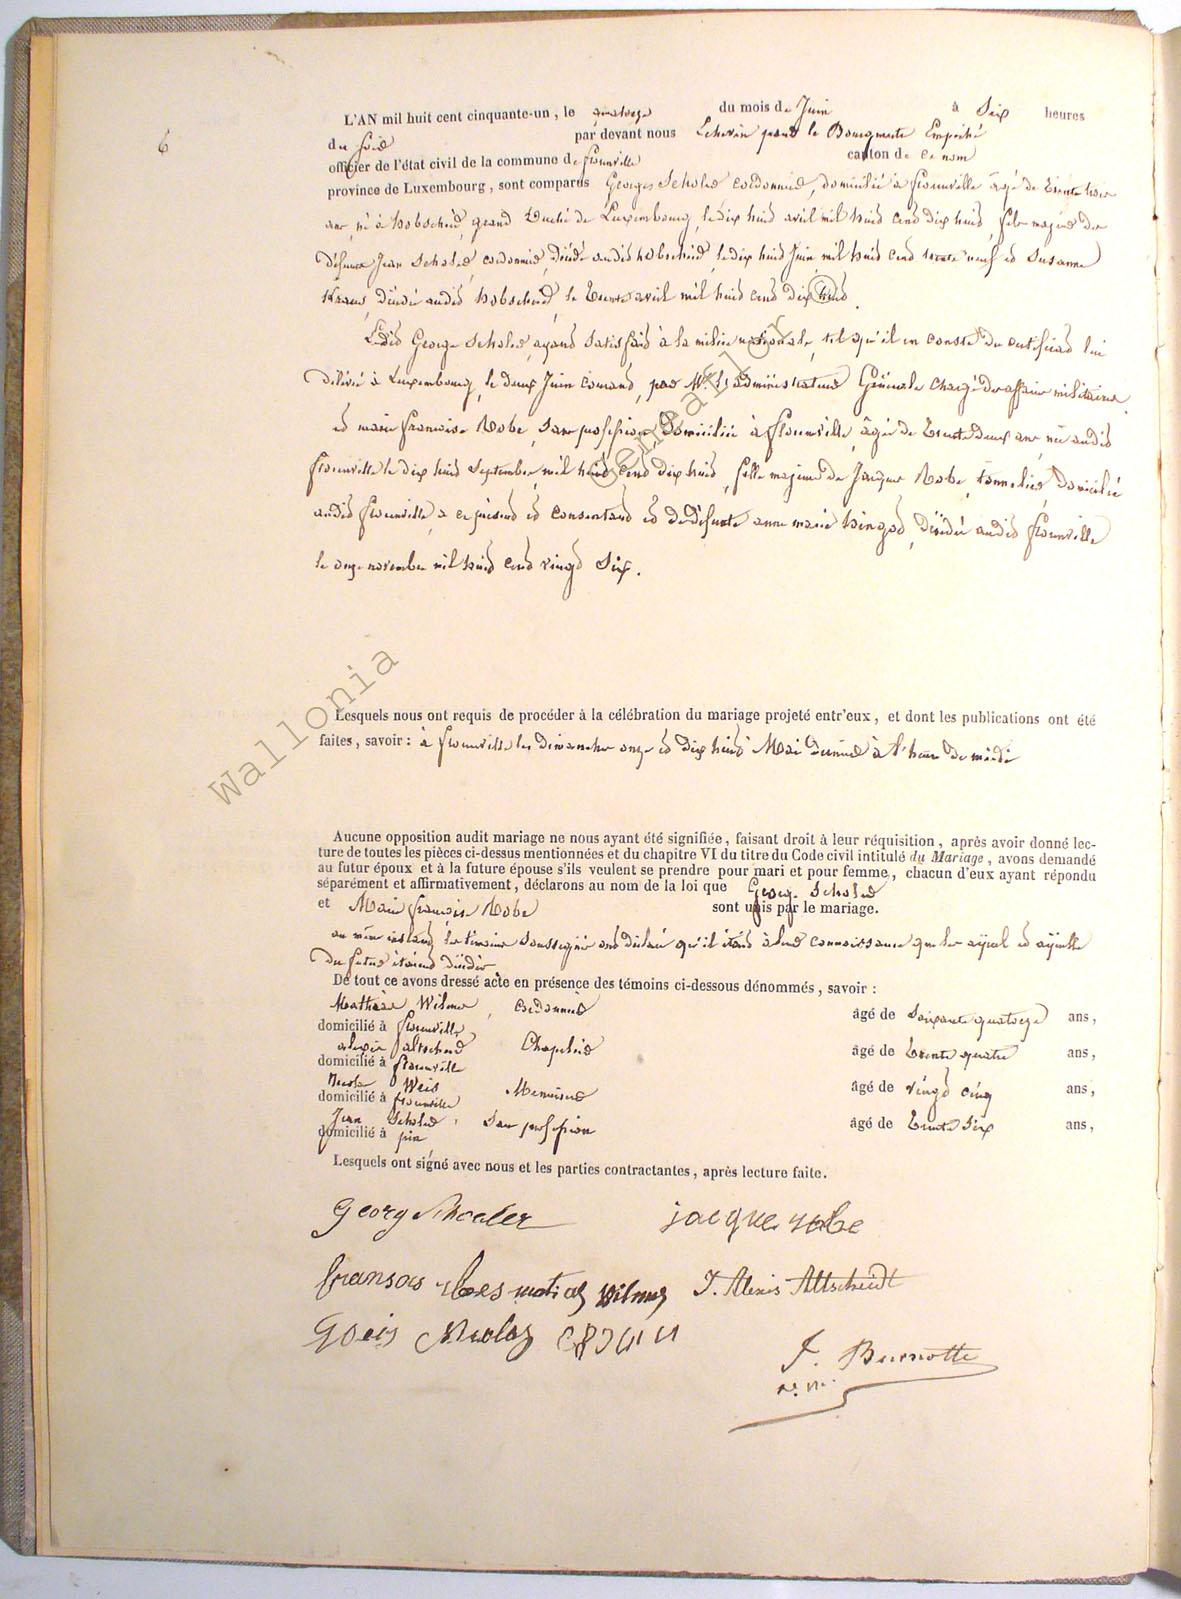 6
L'AN mil huit cent cinquante-un, le quatorze du mois de Juin à Six heures
du soir par devant nous Echevin pour le Bourgmestre Empêché
officier de l'état civil de la commune de florenville canton de ce nom
province de Luxembourg, sont comparus Georges Scholer cordonnier, domicilié à florenville âgé de trente trois
ans, né à hobscheid, grand Duché de Luxembourg, le dix huit avril mil huit cent dix huit, fils majeur de
défunt Jean Scholer, cordonnier, décédé audit hobscheid, le dix huit Juin mil huit cent trente neuf et Susanne
Kraus, décédée audit hobscheid, le avril mil huit cent dix huit.
Ledit George Scholer, ayant satisfait à la milice nationale, tel qu'il en conste du certificat lui
délivré à Luxembourg, le deux Juin courant, par Mr. l'administrateur Général chargé des affaires militaires
et marie françoise Robe, sans profession, domiciliée à florenville, âgée de trente deux ans, née audit
florenville le dix huit Septembre mil huit cent dix huit, fille majeure de Jacques Robe, tonnelier, domicilié
audit florenville, à ce présent et consentant et de défunte anne marie hingot, décédée audit florenville
le onze novembre mil huit cent vingt Six.
Wallonia
Genealor
Lesquels nous ont requis de procéder à la célébration du mariage projeté entr'eux, et dont les publications ont été
faites, savoir: à florenville les dimanches onze et dix huit Mai dernier à l'heure de midi
Aucune opposition audit mariage ne nous ayant été signifiée, faisant droit à leur réquisition, après avoir donné lec-
ture de toutes les pièces ci-dessus mentionnées et du chapitre VI du titre du Code civil intitulé du Mariage, avons demandé
au futur époux et à la future épouse s'ils veulent se prendre pour mari et pour femme, chacun d'eux ayant répondu
séparément et affirmativement, déclarons au nom de la loi que Georg. Scholer
et Marie françoise Robe sont unis par le mariage.
au même instant les témoins soussignés ont déclaré qu'il était à leur connaissance que les ayeul et ayeulle
du futur étaient décédés
De tout ce avons dressé acte en présence des témoins ci-dessous dénommés, savoir:
Mathias Wilmes, cordonnier âgé de Soixante quatorze ans,
domicilié à florenville
alexis altscheid Chapelier âgé de trente quatre ans,
domicilié à florenville
Nicolas Weis Menuisier âgé de vingt cinq ans,
domicilié à florenville
Jean Scholer, Sans profession âgé de trente Six ans,
domicilié à pin
Lesquels ont signé avec nous et les parties contractantes, après lecture faite.
Georg Schoeler jacque robe
fransois robes matias Wilmes J. Alexis Altscheidt
Gweis Nicolas
J. Burnotte